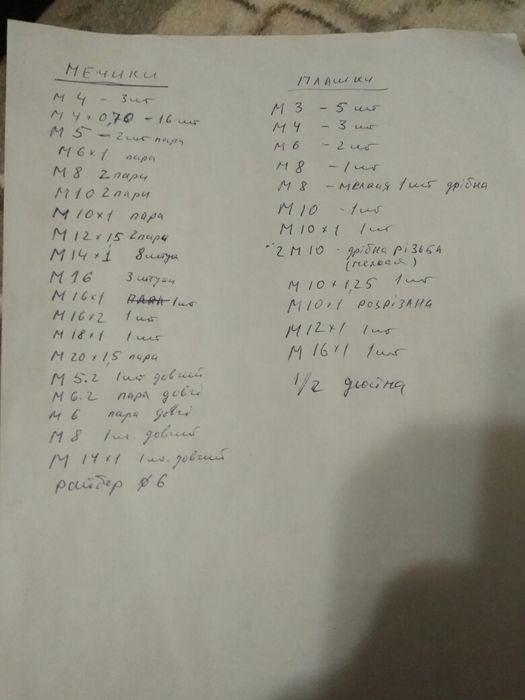 МЕЧИКИ
М 4 - 3шт
М 4 х 0,70 - 16 шт
М 5 - 2шт пари
М 6х1 пара
М 8 2 пари
М 10 2 пари
М 10х1 пара
М 12х15 2 пари
М 14х1 8 штук
М 16 3 штуки
М 16х1 ПАРА 1 шт
М 16х2 1 шт
М 18х1 1 шт
М 20х1,5 пара
М 5.2 1 шт довгий
М 6.2 пара довгі
М 6 пара довгі
М 8 1 шт довгий
М 14х1 1 шт. довгий
райбер ϕ6
ПЛАШКИ
М 3 - 5 шт
М 4 - 3 шт
М 6 - 2 шт
М 8 - 1 шт
М 8 - мелкая 1 шт дрібна
М 10 - 1 шт
М 10х1 1 шт
2 М 10 - дрібна різьба
(мелкая)
М 10х1,25 1 шт
М 10х1 розрізана
М 12х1 1 шт
М 16х1 1 шт
1/2 дюйма